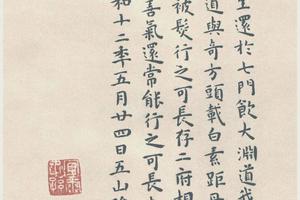 生還於七門飲大淵道我
道與奇方頭載白素距丹
被髮行之可長存二府相
善氣還常能行之可長生
和十二年五月廿四日五山